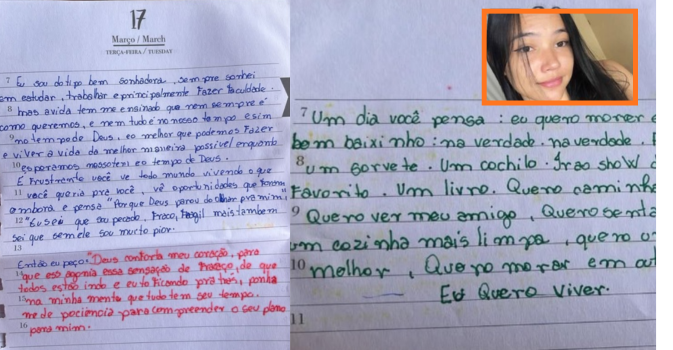 17
Março / March
TERÇA-FEIRA / TUESDAY
7 Eu sou do tipo bem sonhadora, sempre sonhei
em estudar, trabalhar e principalmente Fazer Faculdade.
8 mas a vida tem me ensinado que nem sempre é
como queremos, e nem tudo é no nosso tempo e sim
9 no tempo de Deus, eo melhor que podemos Fazer
e viver a vida da melhor maneira possivel enquanto
10 esperamos eo tempo de Deus.
É Frustrante você ve todo mundo vivendo o que
11 você queria pra você, vê oportunidades que
embora e pensa "Porque Deus parou de olhar pra mim
12 "Eu sei que sou pecado, Fraco, Fragil mais tambem
sei que sem ele sou muito pior.
13
Então eu peço: "Deus conforta meu coração, para
14 que essa agonia essa sensação de Fracaço, de que
todos estão indo e eu to Ficando pra trás, ponha
15 na minha mente que tudo tem seu tempo.
me de paciencia para compreender o seu plano
16 para mim.
7 Um dia você pensa: eu quero morrer e
bem baixinho: na verdade, na verdade,
8 um sorvete. Um cochilo. Ir ao show
Favorito. Um livro. Quero caminha
9 Quero ver meu amigo, Quero senta
um cozinha mais limpa, quero
10 melhor, Quero morar em
Eu Quero Viver.
11